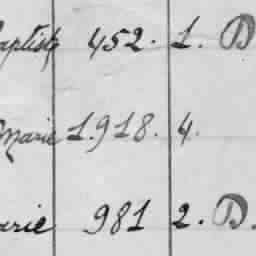 aptiste 452. 1. D
Marie 1.918. 4.
arie 981 2. D.